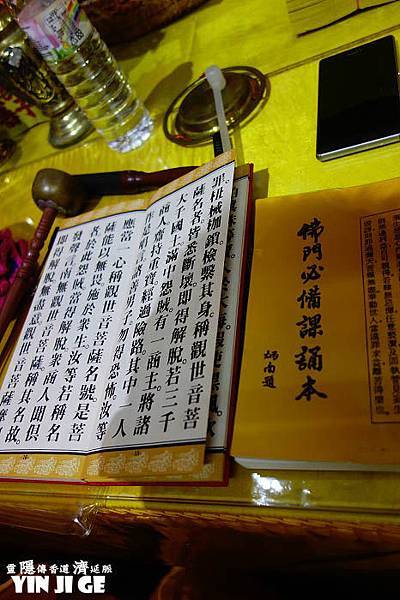 罪杻械枷鎖檢繫其身。稱觀世音菩
薩名者。皆悉斷壞即得解脫。若三千
大千國土滿中怨賊。有一商主。將諸
商人。齎持重寶經過險路。其中一人
作是唱言。諸善男子勿得恐怖。汝等
應當一心稱觀世音菩薩名號。是菩
薩能以無畏施於眾生。汝等若稱名
者。於此怨賊當得解脫。眾商人聞俱
發聲言。南無觀世音菩薩。稱其名故。
即得解脫。無盡意。觀世音菩薩摩
佛門必備課誦本
炳南題
靈隱傳香道濟延脈
YIN JI GE